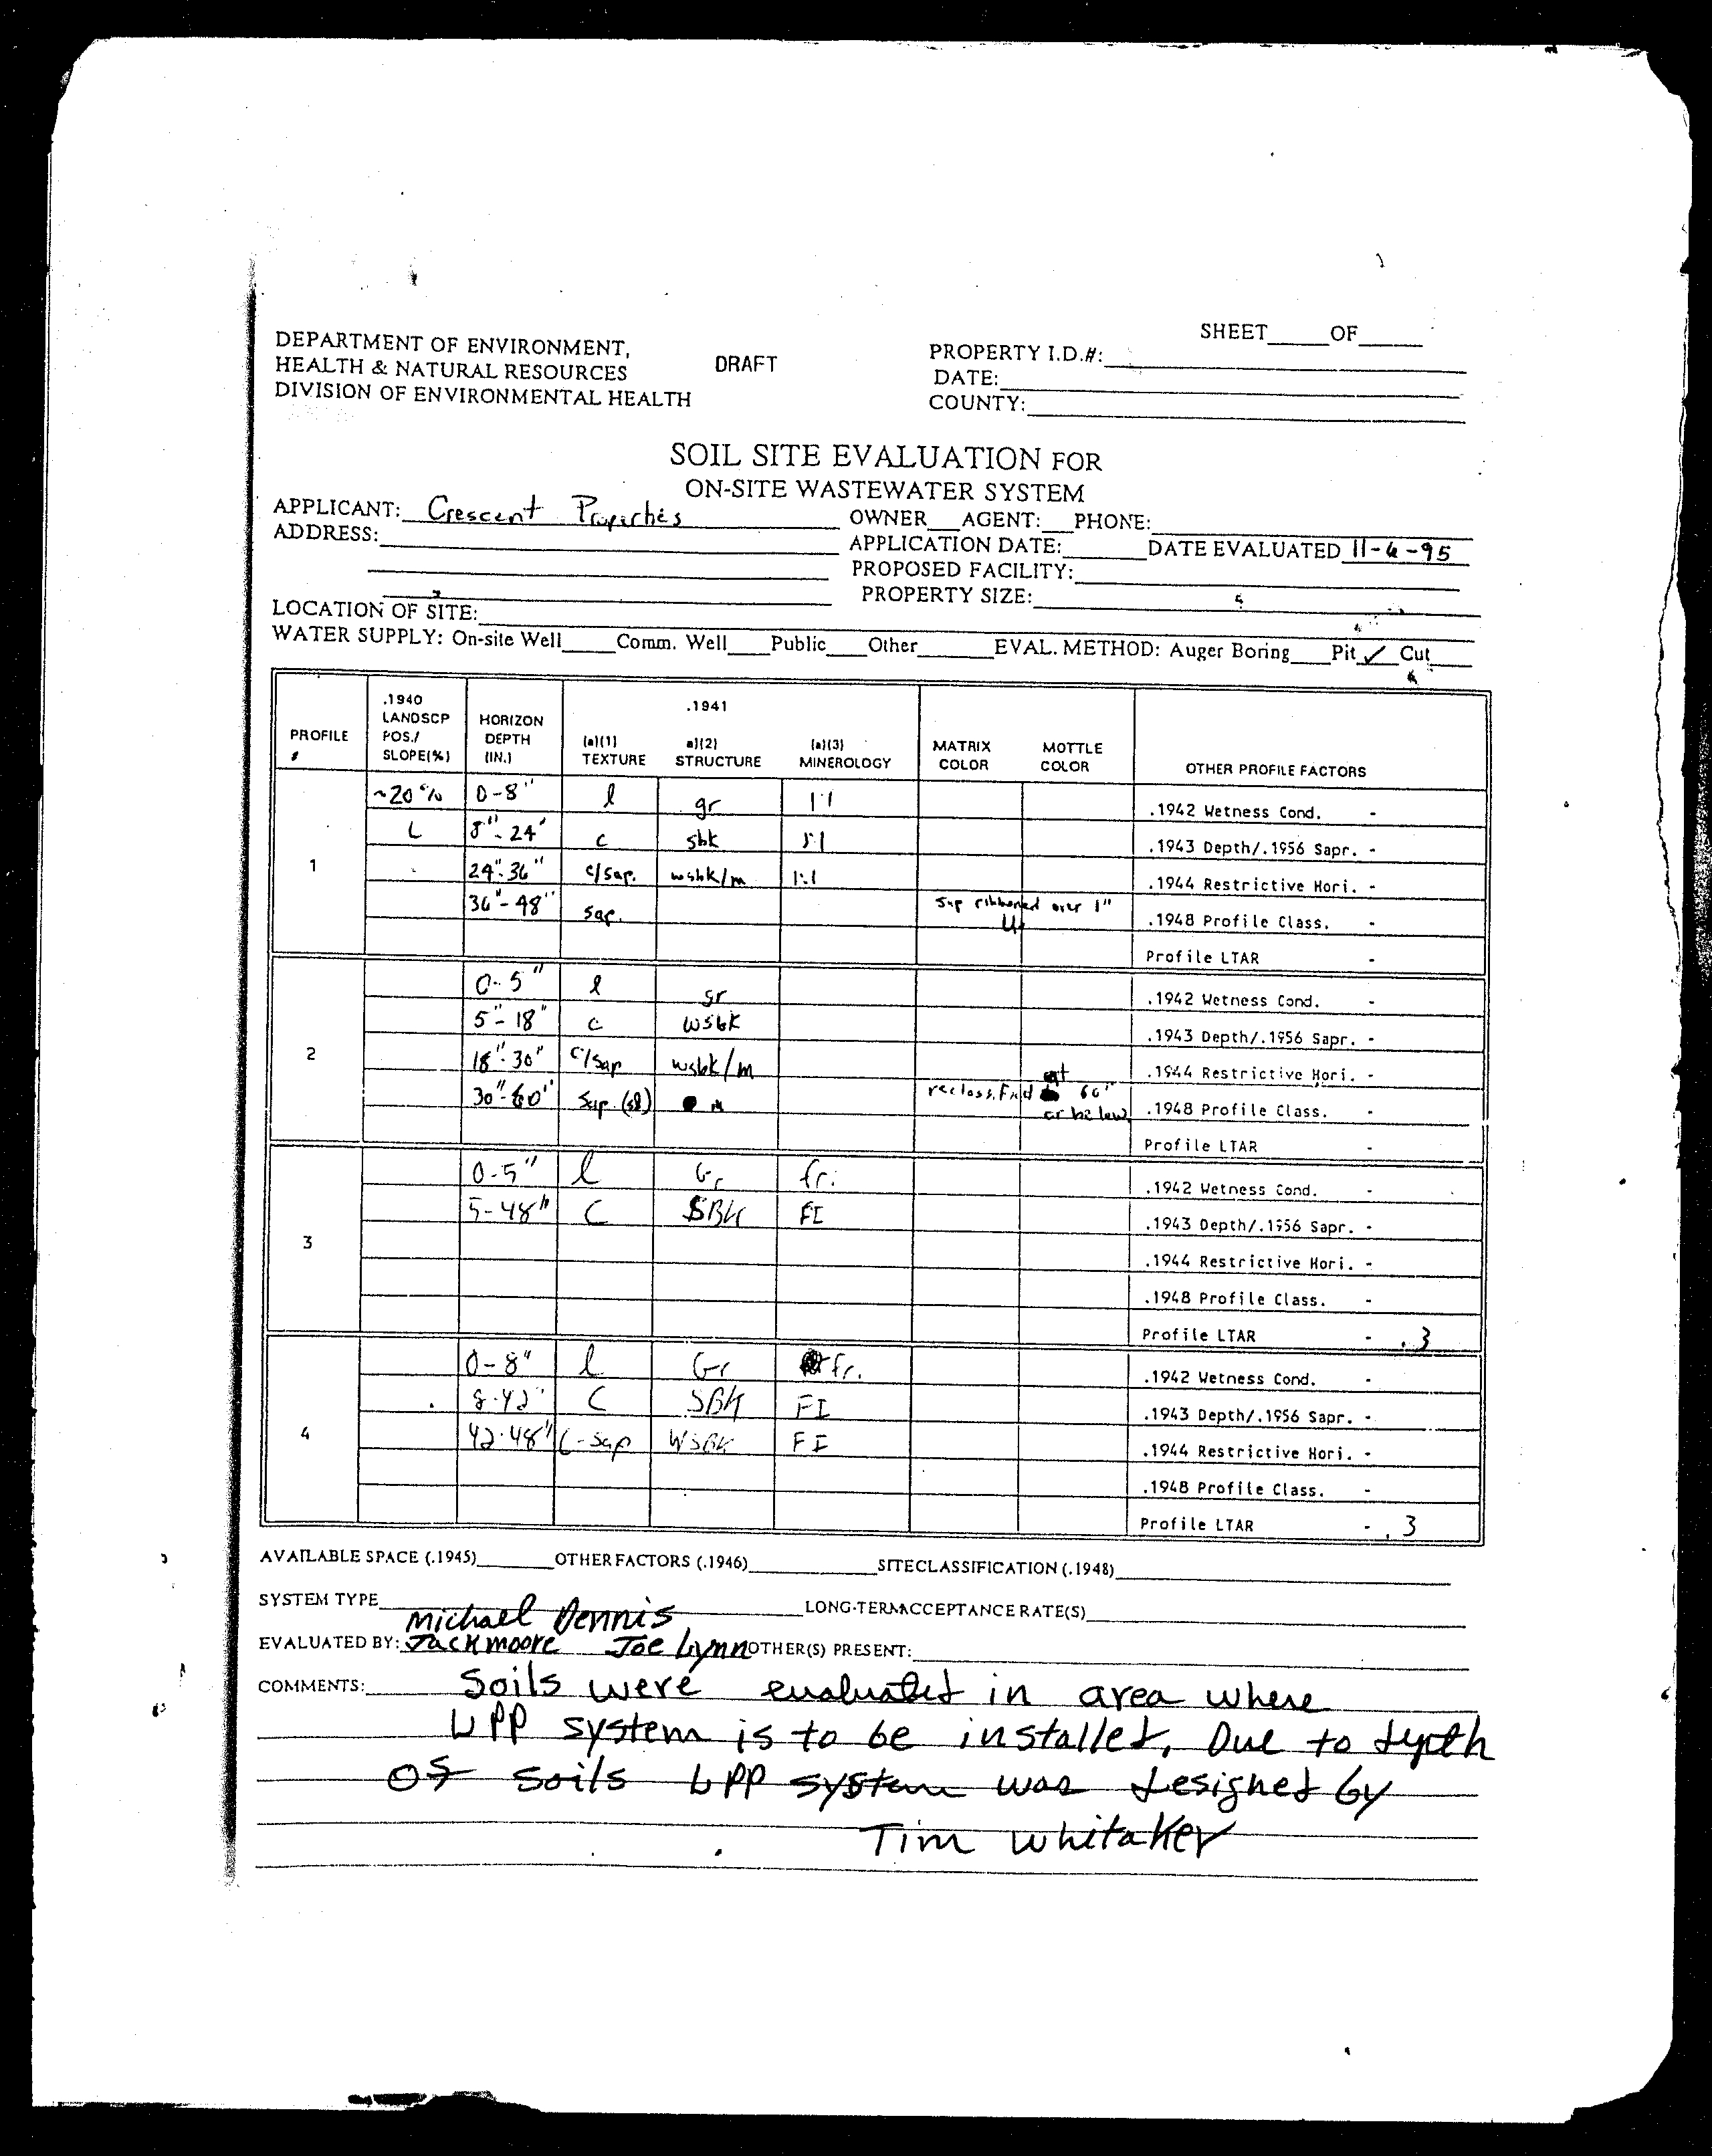 SHEET____OF____
DEPARTMENT OF ENVIRONMENT,
HEALTH & NATURAL RESOURCES
DIVISION OF ENVIRONMENTAL HEALTH
DRAFT
PROPERTY I.D.#:
DATE:
COUNTY:
SOIL SITE EVALUATION FOR
ON-SITE WASTEWATER SYSTEM
APPLICANT: Crescent Properties
OWNER___AGENT:___PHONE:
ADDRESS:
APPLICATION DATE:______DATE EVALUATED 11-6-95
PROPOSED FACILITY:
PROPERTY SIZE:
LOCATION OF SITE:
WATER SUPPLY: On-site Well____Comm. Well____Public____Other______EVAL. METHOD: Auger Boring___Pit ✓ Cut___
PROFILE # .1940 LANDSCP POS./ SLOPE(%) HORIZON DEPTH (IN.) .1941 (a)(1) TEXTURE a)(2) STRUCTURE (a)(3) MINEROLOGY MATRIX COLOR MOTTLE COLOR OTHER PROFILE FACTORS
1
~20% 0-8" l gr 1:1 .1942 Wetness Cond. -
L 8"-24" c sbk 1:1 .1943 Depth/.1956 Sapr. -
24"-36" c/sap. wsbk/m 1:1 .1944 Restrictive Hori. -
36"-48" sap. Sap ribboned over 1" .1948 Profile Class. -
U
Profile LTAR -
2
0-5" l gr .1942 Wetness Cond. -
5"-18" c wsbk .1943 Depth/.1956 Sapr. -
18"-30" c/sap wsbk/m .1944 Restrictive Hori. -
30"-60" Sap. (sl) m reclassified at 60" or below .1948 Profile Class. -
Profile LTAR -
3
0-5" l Gr fr. .1942 Wetness Cond. -
5-48" C SBK FI .1943 Depth/.1956 Sapr. -
.1944 Restrictive Hori. -
.1948 Profile Class. -
Profile LTAR - .3
4
0-8" l Gr fr. .1942 Wetness Cond. -
8-42" C SBK FI .1943 Depth/.1956 Sapr. -
42-48" C-Sap WSBK FI .1944 Restrictive Hori. -
.1948 Profile Class. -
Profile LTAR - .3
AVAILABLE SPACE (.1945)______OTHER FACTORS (.1946)______SITE CLASSIFICATION (.1948)
SYSTEM TYPE______LONG-TERM ACCEPTANCE RATE(S)
Michael Dennis
EVALUATED BY: Jack Moore Joe Lynn OTHER(S) PRESENT:
COMMENTS: Soils were evaluated in area where
LPP system is to be installed. Due to depth
of soils LPP system was designed by
Tim Whitaker